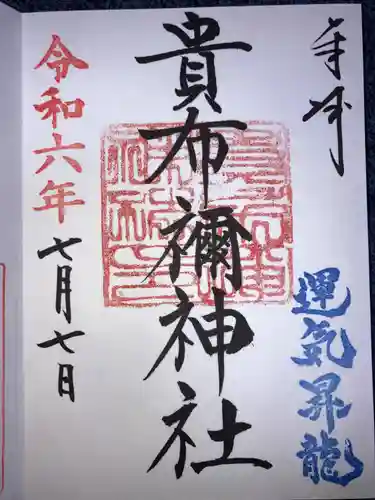 奉拝
運気昇龍
貴布禰神社
令和六年
七月七日